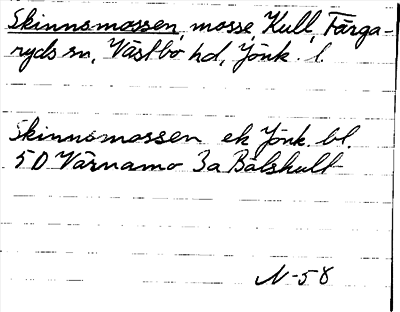 Skinnsmossen, mosse, Kull, Färga-
ryds sn, Västbo hd, Jönk. l.
Skinnsmossen ek Jönk. bl.
5D Värnamo 3a Bölshult
N-58